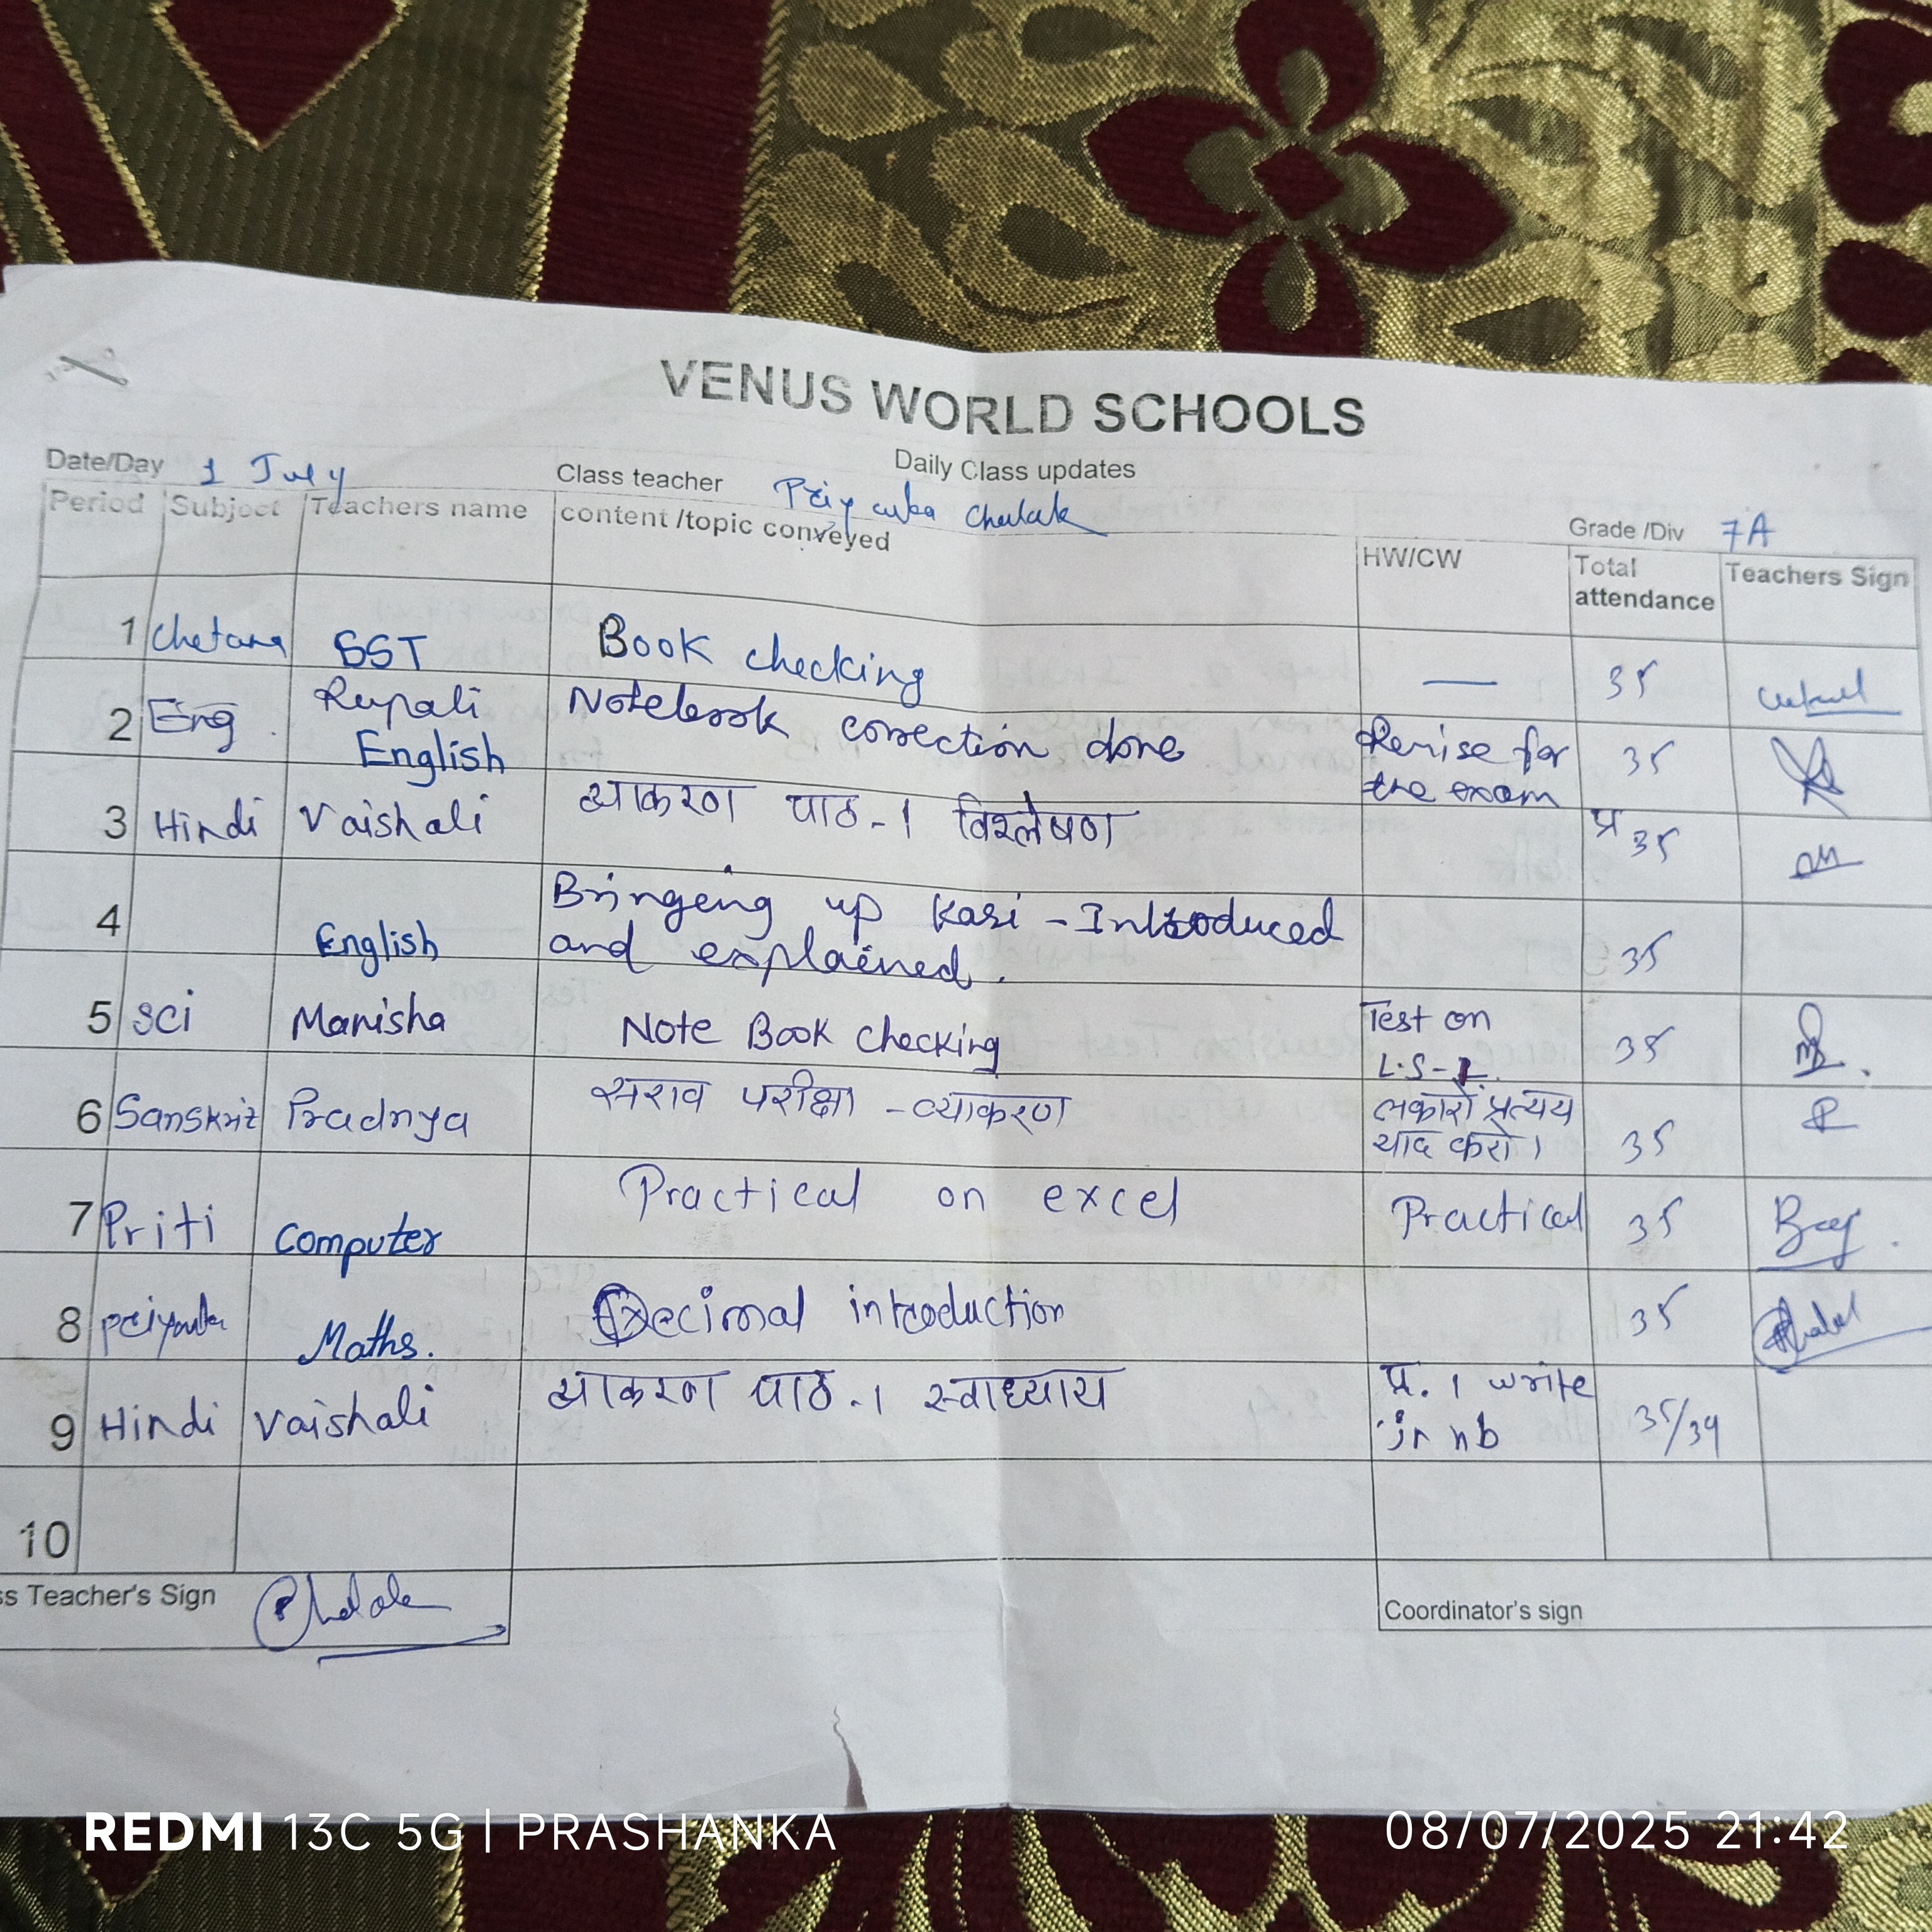 VENUS WORLD SCHOOLS
Daily Class updates
Date/Day 1 July Class teacher Priyanka Chalak Grade /Div 7A
Period Subject Teachers name content /topic conveyed HW/CW Total attendance Teachers Sign
1 Chetana SST Book checking — 35
2 Eng. Rupali Notebook correction done Revise for 35
English the exam
3 Hindi Vaishali व्याकरण पाठ-1 विश्लेषण प्र 35
4 Bringeing up Kari - Introduced
English and explained. 35
5 Sci Manisha Note Book checking Test on 35
L.S-1.
6 Sanskrit Pradnya सराव परीक्षा - व्याकरण लकारों प्रत्यय
याद करो। 35
7 Priti Computer Practical on excel Practical 35
8 Priyanka Maths. Decimal introduction 35
9 Hindi Vaishali व्याकरण पाठ-1 स्वाध्याय प्र. 1 write
in nb 35/39
10
ss Teacher's Sign
Coordinator's sign
REDMI 13C 5G | PRASHANKA 08/07/2025 21:42